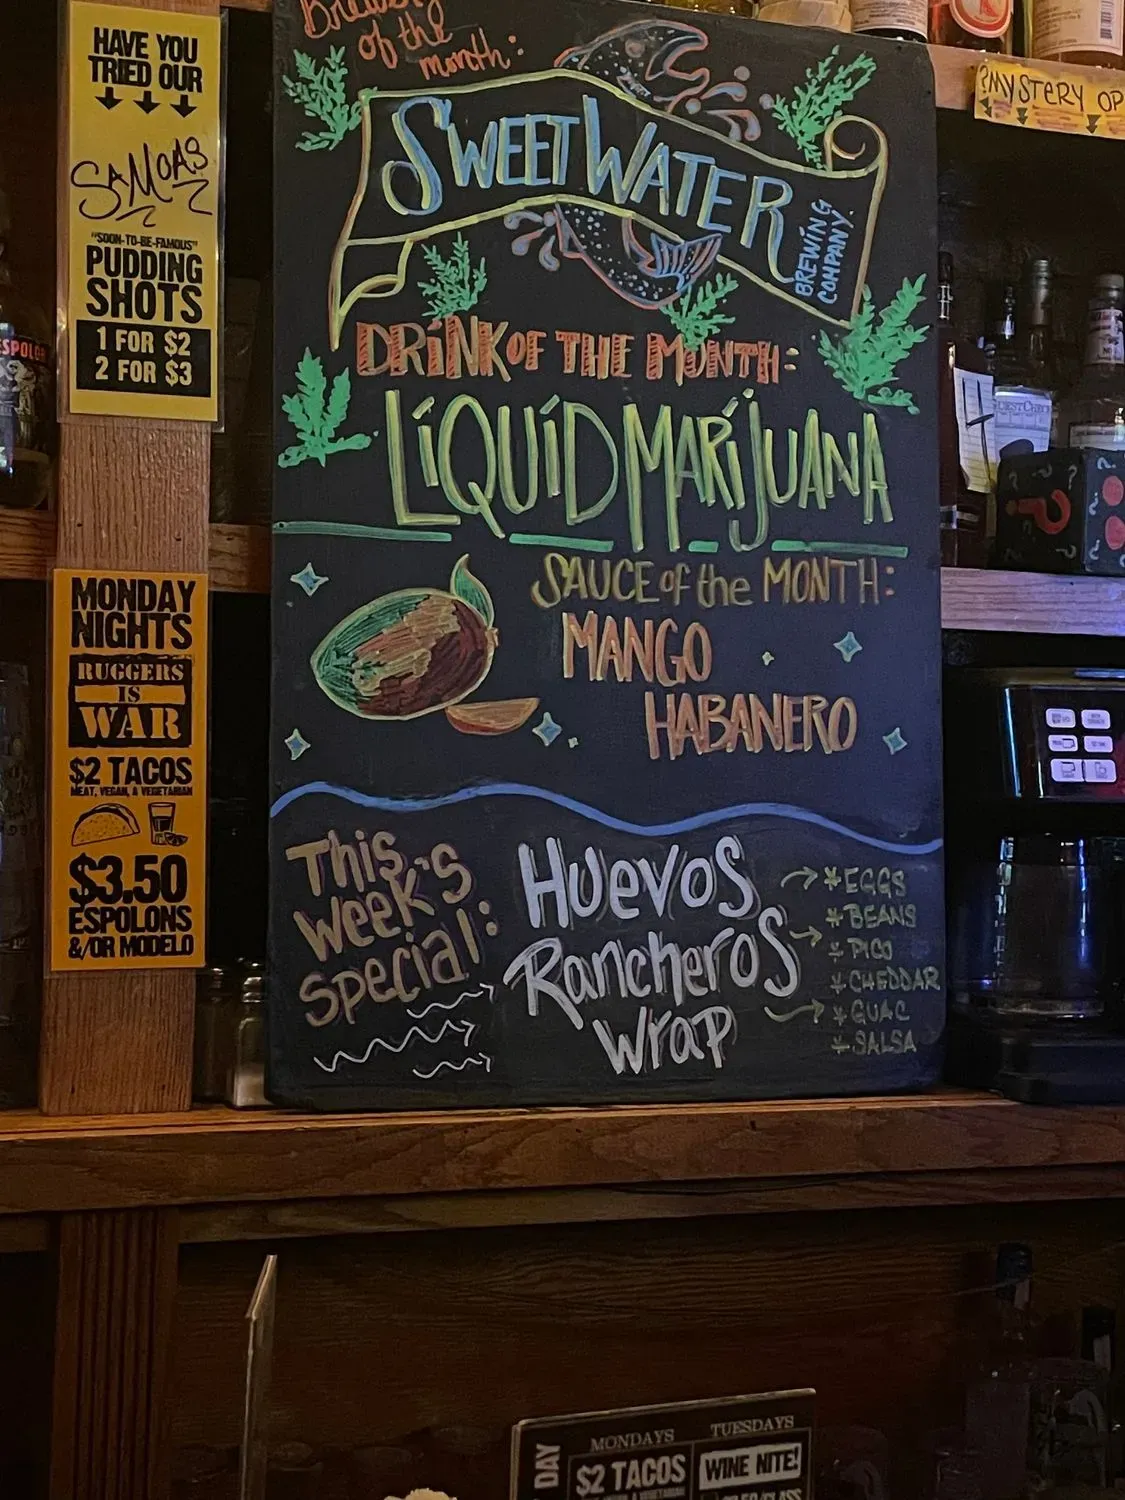 HAVE YOU
TRIED OUR
SAMOAS
"SOON-TO-BE-FAMOUS"
PUDDING
SHOTS
1 FOR $2
2 FOR $3
MONDAY
NIGHTS
RUGGERS
IS
WAR
$2 TACOS
MEAT, VEGAN, & VEGETARIAN
$3.50
ESPOLONS
&/OR MODELO
Brewery
of the
month:
SWEETWATER
BREWING
COMPANY
DRINK OF THE MONTH:
LIQUID MARIJUANA
SAUCE of the MONTH:
MANGO
HABANERO
This
Week's
Special:
Huevos
Rancheros
Wrap
* EGGS
* BEANS
* PICO
* CHEDDAR
* GUAC
* SALSA
?MYSTERY OP
ESPOLO
DAY
MONDAYS
$2 TACOS
TUESDAYS
WINE NITE!